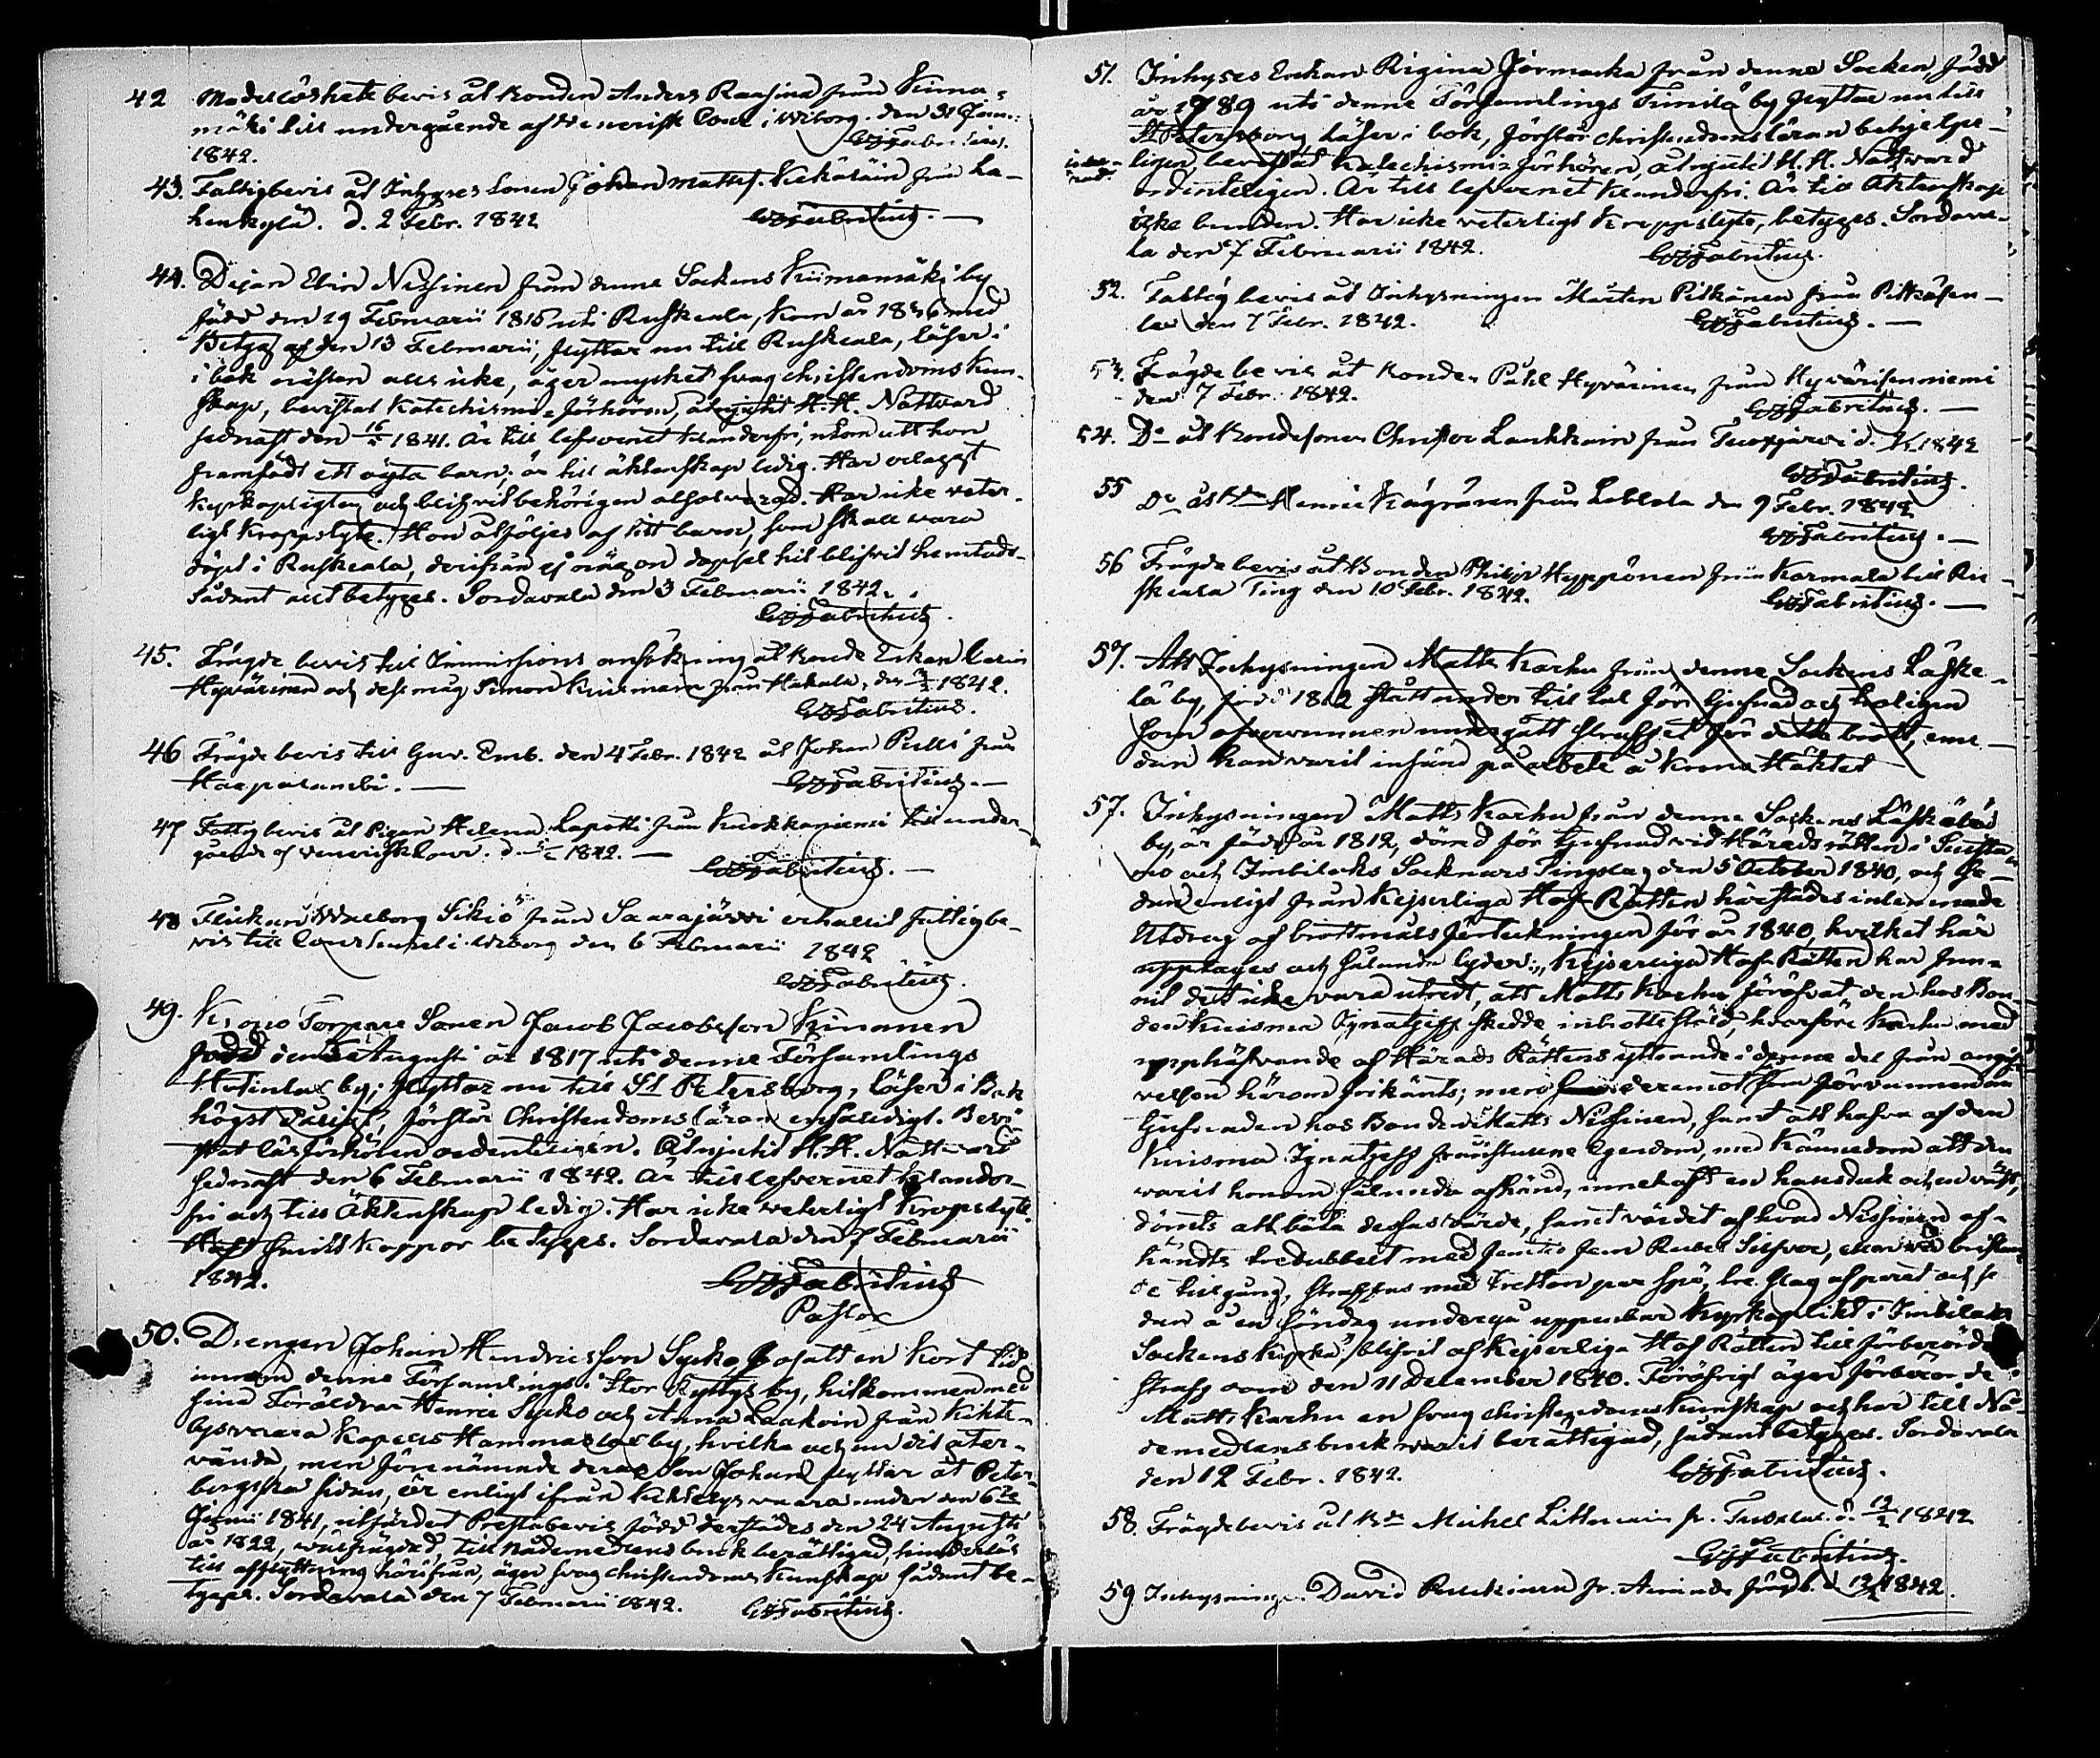 42 Medellöshets bevis åt bonden Anders Rausina från Kiima-
mäki till undergående af Venerisk Cour i Wiborg. den 31 Janu.
1842. GJFabritius.
43. Fattigbevis åt Inhyses Sonen Johan Mattss. Kekäläin från La-
henkylä. d. 2 Febr. 1842 GJFabritius.
44. Pigan Elin Nissinen från denne Sockens Kiimamäki by
född den 19 Februarii 1815 uti Ruskeala, kom år 1836 med
Betyg af den 13 Februarii, flyttar nu till Ruskeala, läser i
i bok nästan alls icke, äger mycket svag christendoms kun-
skap, bevistat Katechismi-förhören, åtnjutit H. H. Nattvard
sednast den 1841. Är till lefvernet klanderfri, utom att hon
framfödt ett oägta barn, är till äktenskap ledig. Har aflaggt
Kyrkopligten och blifvit behörigen absolverad. Har icke veter-
ligt Kroppslyte. Hon åtföljes af sitt barn, som skall vara
döpt i Ruskeala, derifrån ej någon dopsel hit blifvit hemtad.
Sådant allt betyges. Sordavala den 3 Februarii 1842.
GJFabritius.
45. Frägde bevis till Immissions ansökning åt bonde Enkan Carin
Hyvärinen och dess måg Simon Kuismain från Hakala, den 1842.
GJFabritius.
46 Frägde bevis till Guv. Emb. den 4 Febr. 1842 åt Johan Pulli från
Haapalambi. GJFabritius.
47 Fattigbevis åt Pigan Helena Lapatti från Kuokkaniemi till under-
gående af venerisk cour. d. 1842. GJFabritius.
48 Flickan Walborg Sikiö från Saarajärvi erhållit fattigbe-
vis till Courhuset i Wiborg den 6 Februarii 1842
GJFabritius.
49. Krono Torpare Sonen Jacob Jacobsson Kinnanen
född den Augusti år 1817 uti denne Församlings
by; flyttar nu till St Petersborg, läser i Bok
högst , förstår Christendomsläran enfaldigt. Bevi-
stat läsförhören ordenteligen. Åtnjutit H. H. Nattvard
sednast den 6 Februarii 1842. Är till lefvernet klander-
fri och till Äktenskap ledig. Har icke veterligt Kropslyte.
Haft Smittkoppor betyges. Sordavala den 7 Februarii
1842. GJFabritius
Pastor
50. Drengen Johan Hendricsson Sycko hafatt en kort tid
innom denne Församlings Stor Ryttys by, hitkommen med
sina Föräldrar Henric Sycko och Anna Laakoin från Kikte-
lysvaara Kapells Hammaslax by, hvilka och nu dit åter-
vända, men förenämnde deras Son Johan flyttar åt Peters-
burgska sidan, är enligt ifrån Kiktelysvaara under den 6te
Junii 1841, utfärdat Prestabevis född derstädes den 24 Augusti
år 1822, välfrägdad, till Nådemedlens bruk berättigad, hinderlös
till afflyttning härifrån, äger svag christendoms kunskap sådant be-
tyges. Sordavala den 7 Februarii 1842. GJFabritius.
51. Inhyses Enkan Rigina Jormacka från denne Socken, född
år 1789 uti denne Församlings Tuusla by flyttar nu till
St Petersborg, läser i bok, förstår christendomsläran behjelpe-
ligen, bevistat Katechismi-förhören, åtnjutit H. H. Nattvard
ordenteligen. Är till lefvernet klanderfri. Är till Äktenskap
icke bunden. Har icke veterligt Kroppslyte, betyges. Sordava-
la den 7 Februarii 1842. GJFabritius.
52. Fattigbevis åt Inhysningen Mårten Pitkänen från Pitkäsen-
lax den 7 Febr. 1842. GJFabritius.
53. Frägdebevis åt bonden Påhl Hyvärinen från Hyvärisenniemi
den 7 Febr. 1842. GJFabritius.
54. Do åt bondesonen Christer Laukkain från Tuoxjärvi d. 1842
GJFabritius.
55 Do åt Henric Kägränen från Leblola den 9 Febr. 1842
GJFabritius.
56 Frägdebevis åt Bonden Philip Hyppönen från Karmala till Ru-
skeala Ting den 10 Febr. 1842. GJFabritius.
57. Att Inhysningen Matts Karhu från denne Sockens Läske-
lä by, född 1812 stått under till tal för tjufnad och
som öfvervunnen undergått straffet för detta brott, eme-
dan han varit insänd på arbete å Krono Häktet
57. Inhysningen Matts Karhu från denne Sockens Läskelä
by, är född år 1812, dömd för tjufnad vid Häradsrätten i Suista-
mo och Imbilacks Socknars Tingslag den 5 October 1840, och se-
dan enligt från Kejserliga Hof-Rätten härstädes inlemnade
Utdrag af brottmåls förteckningen för år 1840, hvilket här
upptages och sålunda lyder: "Kejserliga Hof-Rätten har fun-
nit det icke vara utredt, att Matts Karhu föröfvat den hos Bon-
den Kuisma Ignatjeff skedde inbrottsstöld, hvarföre Karhu med
upphäfvande af Härads Rättens yttrande i denne del från angif-
velsen härom frikänts; men deremot som förvunnen om
tjufnaden hos Bonden Matts Nissinen, samt att hafva af den
Kuisma Ignatjeff frånstulne Egendom, med kännedom att den
varit honom sålunda afhänd, innehaft en halsduk och en väst,
dömts att böta dessas värde, samt värdet af hvad Nissinen af-
händts tredubbelt med Femtio fem Rubel Silfver, eller vid bristan-
de tillgång, straffas med tretton par spö, tre slag af paret och se-
dan å en Söndag undergå uppenbar Kyrkoplikt i Imbilax
Sockens Kyrka," blifvit af Kejserliga Hof Rätten till förberörde
straff dömd den 11 December 1840. Föröfrigt äger förberörde
Matts Karhu en svag christendoms kunskap och har till Nå-
demedlens bruk varit berättigad, sådant betyges. Sordavala
den 12 Febr. 1842. GJFabritius.
58. Frägdebevis åt Michel Littunain fr. Tuoxlax d. 12/2 1842
GJFabritius.
59 Inhysningen David Ruukinen fr. Anjinde frägdb. d 12/2 1842.